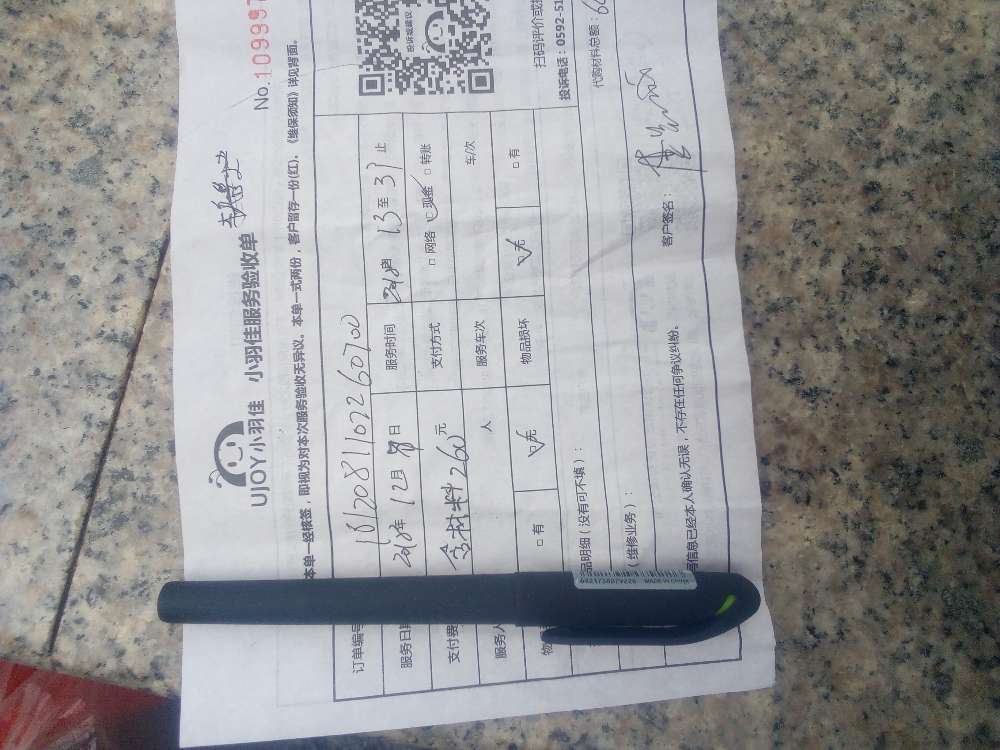 UJOY小羽佳 小羽佳服务验收单
No.109997
本单一经核签，即视为对本次服务验收无异议。本单一式两份，客户留存一份(红)。《维保须知》详见背面。
订单编号 1612081107260700
服务日期 年12月 日 服务时间 13至 止
支付费 含材料260元 支付方式 □网络 ☑现金 □转账
服务人 人 服务车次 车/次
物 □有 ☑无 物品损坏 ☑无 □有
品明细（没有可不填）：
（维修业务）：
代购材料总额：
号信息已经本人确认无误，不存在任何争议纠纷。 客户签名：
投诉或建议
扫码评价或
投诉电话：0592-51
MADE IN CHINA